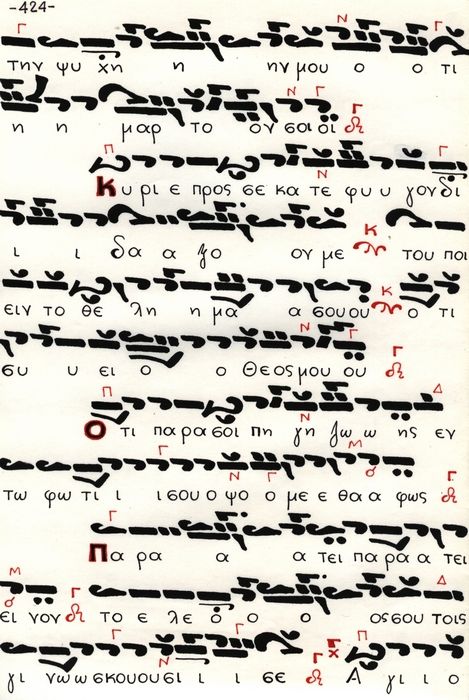 -424-
την ψυ χη η ην μου ο ο τι
η η μαρ το ον σοι οϊ
Κ υ ρι ε προς σε κα τε φυ υ γον δι
ι ι δα α ξο ον με του ποι
ειν το θε λη η μα α σου ου ο τι
συ υ ει ο ο Θε ος μου ου
Ο τι παρα σοι πη γη ζω ω ης εν
τω φω τι ι ι σου ο ψο ο με ε θα α φως
Πα ρα α α τει πα ρα α τει
ει νον το ε λε ο ο ο ος σου τοις
γι νω ω σκου ου σι ι ι σε Α γι ι ο